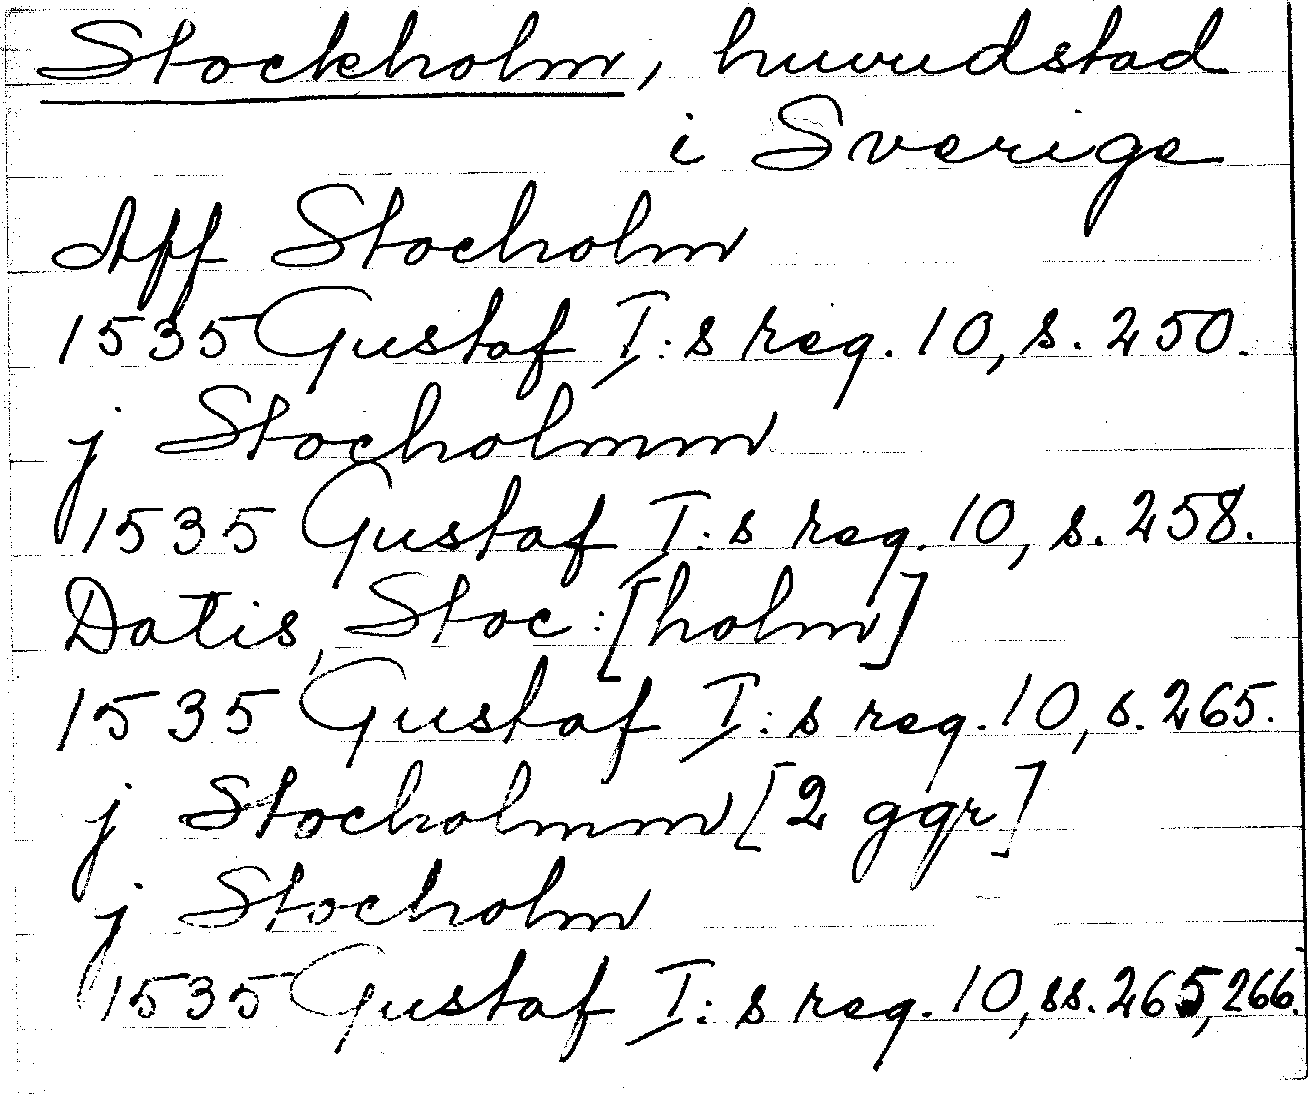 Stockholm, huvudstad
i Sverige
Aff Stocholm
1535 Gustaf I:s reg. 10, s. 250.
j Stocholmm
1535 Gustaf I:s reg. 10, s. 258.
Datis, Stoc:[holm]
1535 Gustaf I:s reg. 10, s. 265.
j Stocholmm [2 ggr]
j Stocholm
1535 Gustaf I:s reg. 10, ss. 265, 266.